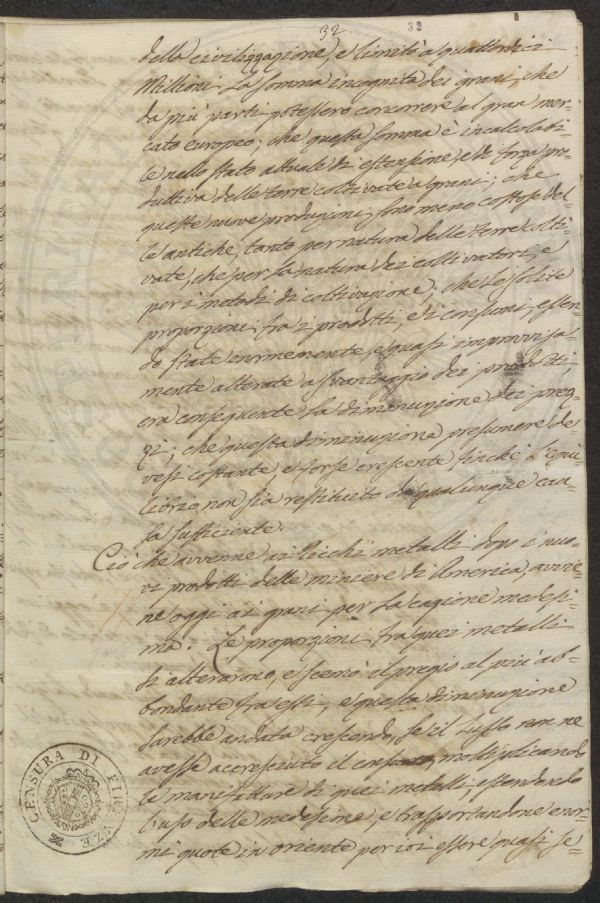 32 32
della civilizzazione, e limitò a quattordici
Millioni la somma incognita dei grani, che
da più parti potessero concorrere al gran mer=
cato europeo; che questa somma è incalcolabi=
le nello stato attuale di estensione, e di forza pro=
duttiva delle terre coltivate a grani; che
queste nuove produzioni sono meno costose del
le antiche, tanto per natura delle terre colti=
vate, che per la natura dei coltivatori, e
per i metodi di coltivazione; che le solite
proporzioni fra i prodotti, e i consumi, essen=
do state enormemente, e quasi improvvisa
mente alterate a svantaggio dei prodotti
era conseguente la diminuzione dei prez=
zi; che questa diminuzione presumere de=
vesi costante, e forse crescente finchè l'equi=
librio non sia restituito da qualunque cau=
sa sufficiente.
Ciò che avvenne ai ricchi metalli dopo i nuo=
vi prodotti delle miniere di America, avvie=
ne oggi ai grani per la cagione medesi=
ma. Le proporzioni fra quei metalli
si alterarono, e scemò il pregio al più ab=
bondante fra essi, e questa diminuzione
sarebbe andata crescendo, se il lusso non ne
avesse accresciuto il moltiplicando
le manifatture di quei metalli, estendendo
l'uso delle medesime, e trasportandone enor=
mi quote in oriente per ivi essere quasi se=
CENSURA DI FIRENZE